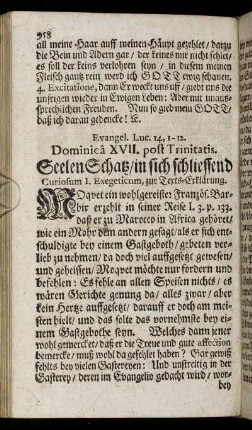 958
all meine Haar auff meinen Häupt gezehlet/ darzu
die Bein und Adern gar/ der keines mir nicht schiet/
es soll der keins verlohren seyn/ in diesem meinen
Fleisch gantz rein werd ich GOTT ewig schauen.
4. Excitatione, dann Er weckt uns uff/ giebt uns die
unsrigen wieder in Ewigen Leben: Aber mit unaus-
sprechlichen Freuden. Nun so gieb mein GOTT/
daß ich daran gedencke! &c.
Evangel. Luc. 14, 1-12.
Dominicâ XVII. post Trinitatis.
Seelen Schatz/ in sich schliessend
Curiosum I. Exegeticum, zur Texts-Erklärung.
MOqvet ein wohlgereister Französ. Bar-
bir erzehlt in seiner Reise l. 3. p. 133.
daß er zu Marocco in Africa gehöret/
wie ein Mohr dem andern gesagt/ als er sich ent-
schuldigte bey einem Gastgeboth/ gebeten ver-
lieb zu nehmen/ da doch viel auffgesetzt gewesen/
und geheissen/ Moqvet möchte nur fordern und
befehlen: Es fehle an allen Speisen nichts/ es
wären Gerichte genung da/ alles zwar/ aber
kein Hertze auffgesetzt/ darauff er doch am mei-
sten hielt/ und das solte das vornehmste bey ei-
nem Gastgebothe seyn. Welches dann jener
wohl gemercket/ daß er die Treue und gute affection
bemercke/ muß wohl da gefehlet haben? Gar gewiß
fehlts bey vielen Gastereyen: Und unstreitig in der
Gasterey/ deren im Evangelio gedacht wird/ wor-
bey